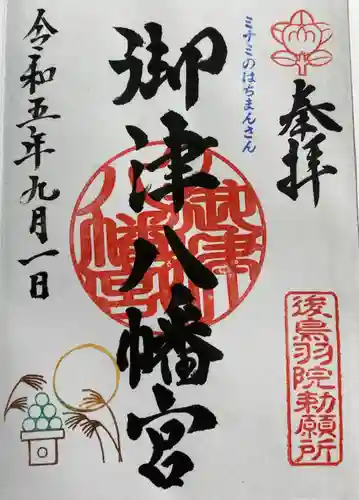 奉拝
ミナミのはちまんさん
御津八幡宮
令和五年九月一日
後鳥羽院勅願所
御津八幡宮